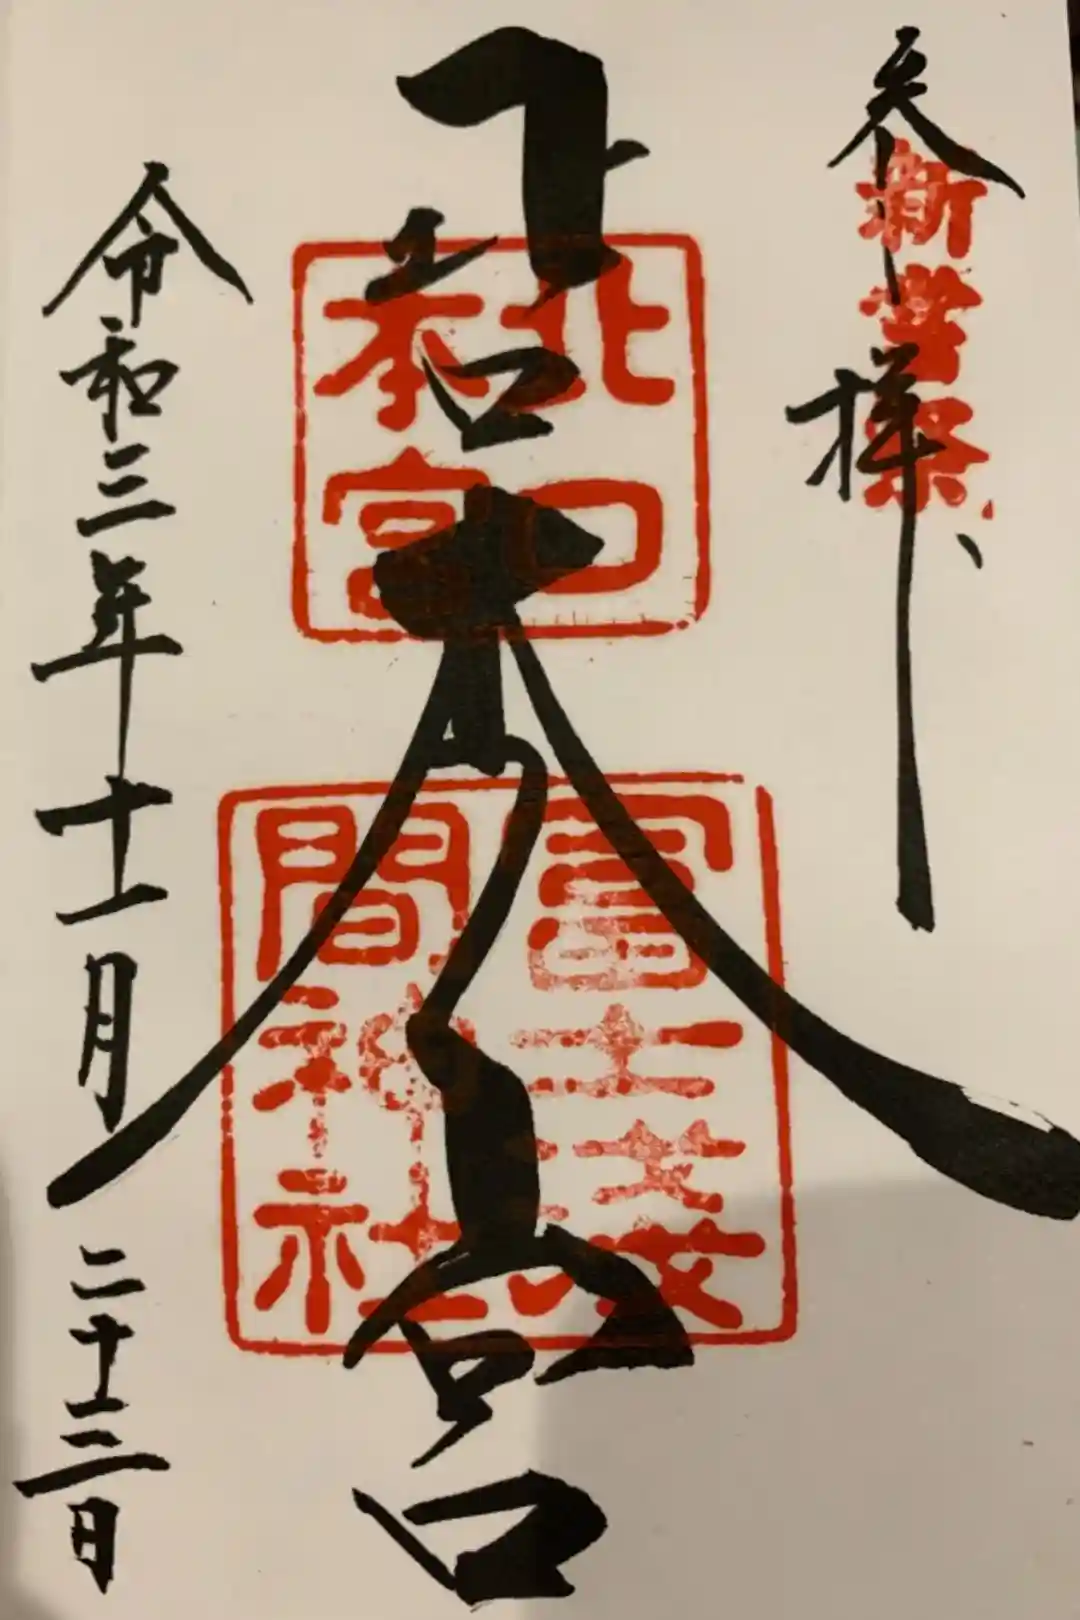 参拝
新嘗祭
北口本宮
北口
本宮
富士淺
間神社
令和三年十一月二十三日